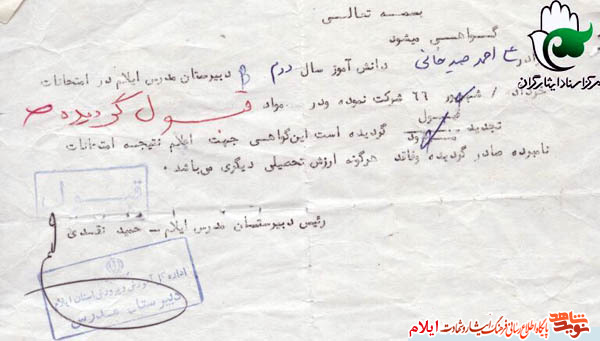 بسمه تعالی
گواهی میشود
برادر احمد صیدخانی دانش آموز سال دوم دبیرستان مدرس ایلام در امتحانات
خرداد / شهریور ۶۶ شرکت نموده ودر مواد قبول گردیده
تجدید قبول مردود گردیده است این گواهی جهت اعلام نتیجه امتحانات
نامبرده صادر گردیده وفاقد هرگونه ارزش تحصیلی دیگری می باشد .
قبول
رئیس دبیرستان مدرس ایلام – حمید نقدی
اداره کل آموزش و پرورش استان ایلام
دبیرستان مدرس
مرکز اسناد ایثارگران
نوید شاهد
پایگاه اطلاع رسانی فرهنگ ایثار و شهادت ایلام